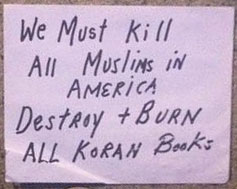 We Must Kill
All Muslims in
AMERICA
DESTROY + BURN
ALL KORAN Books